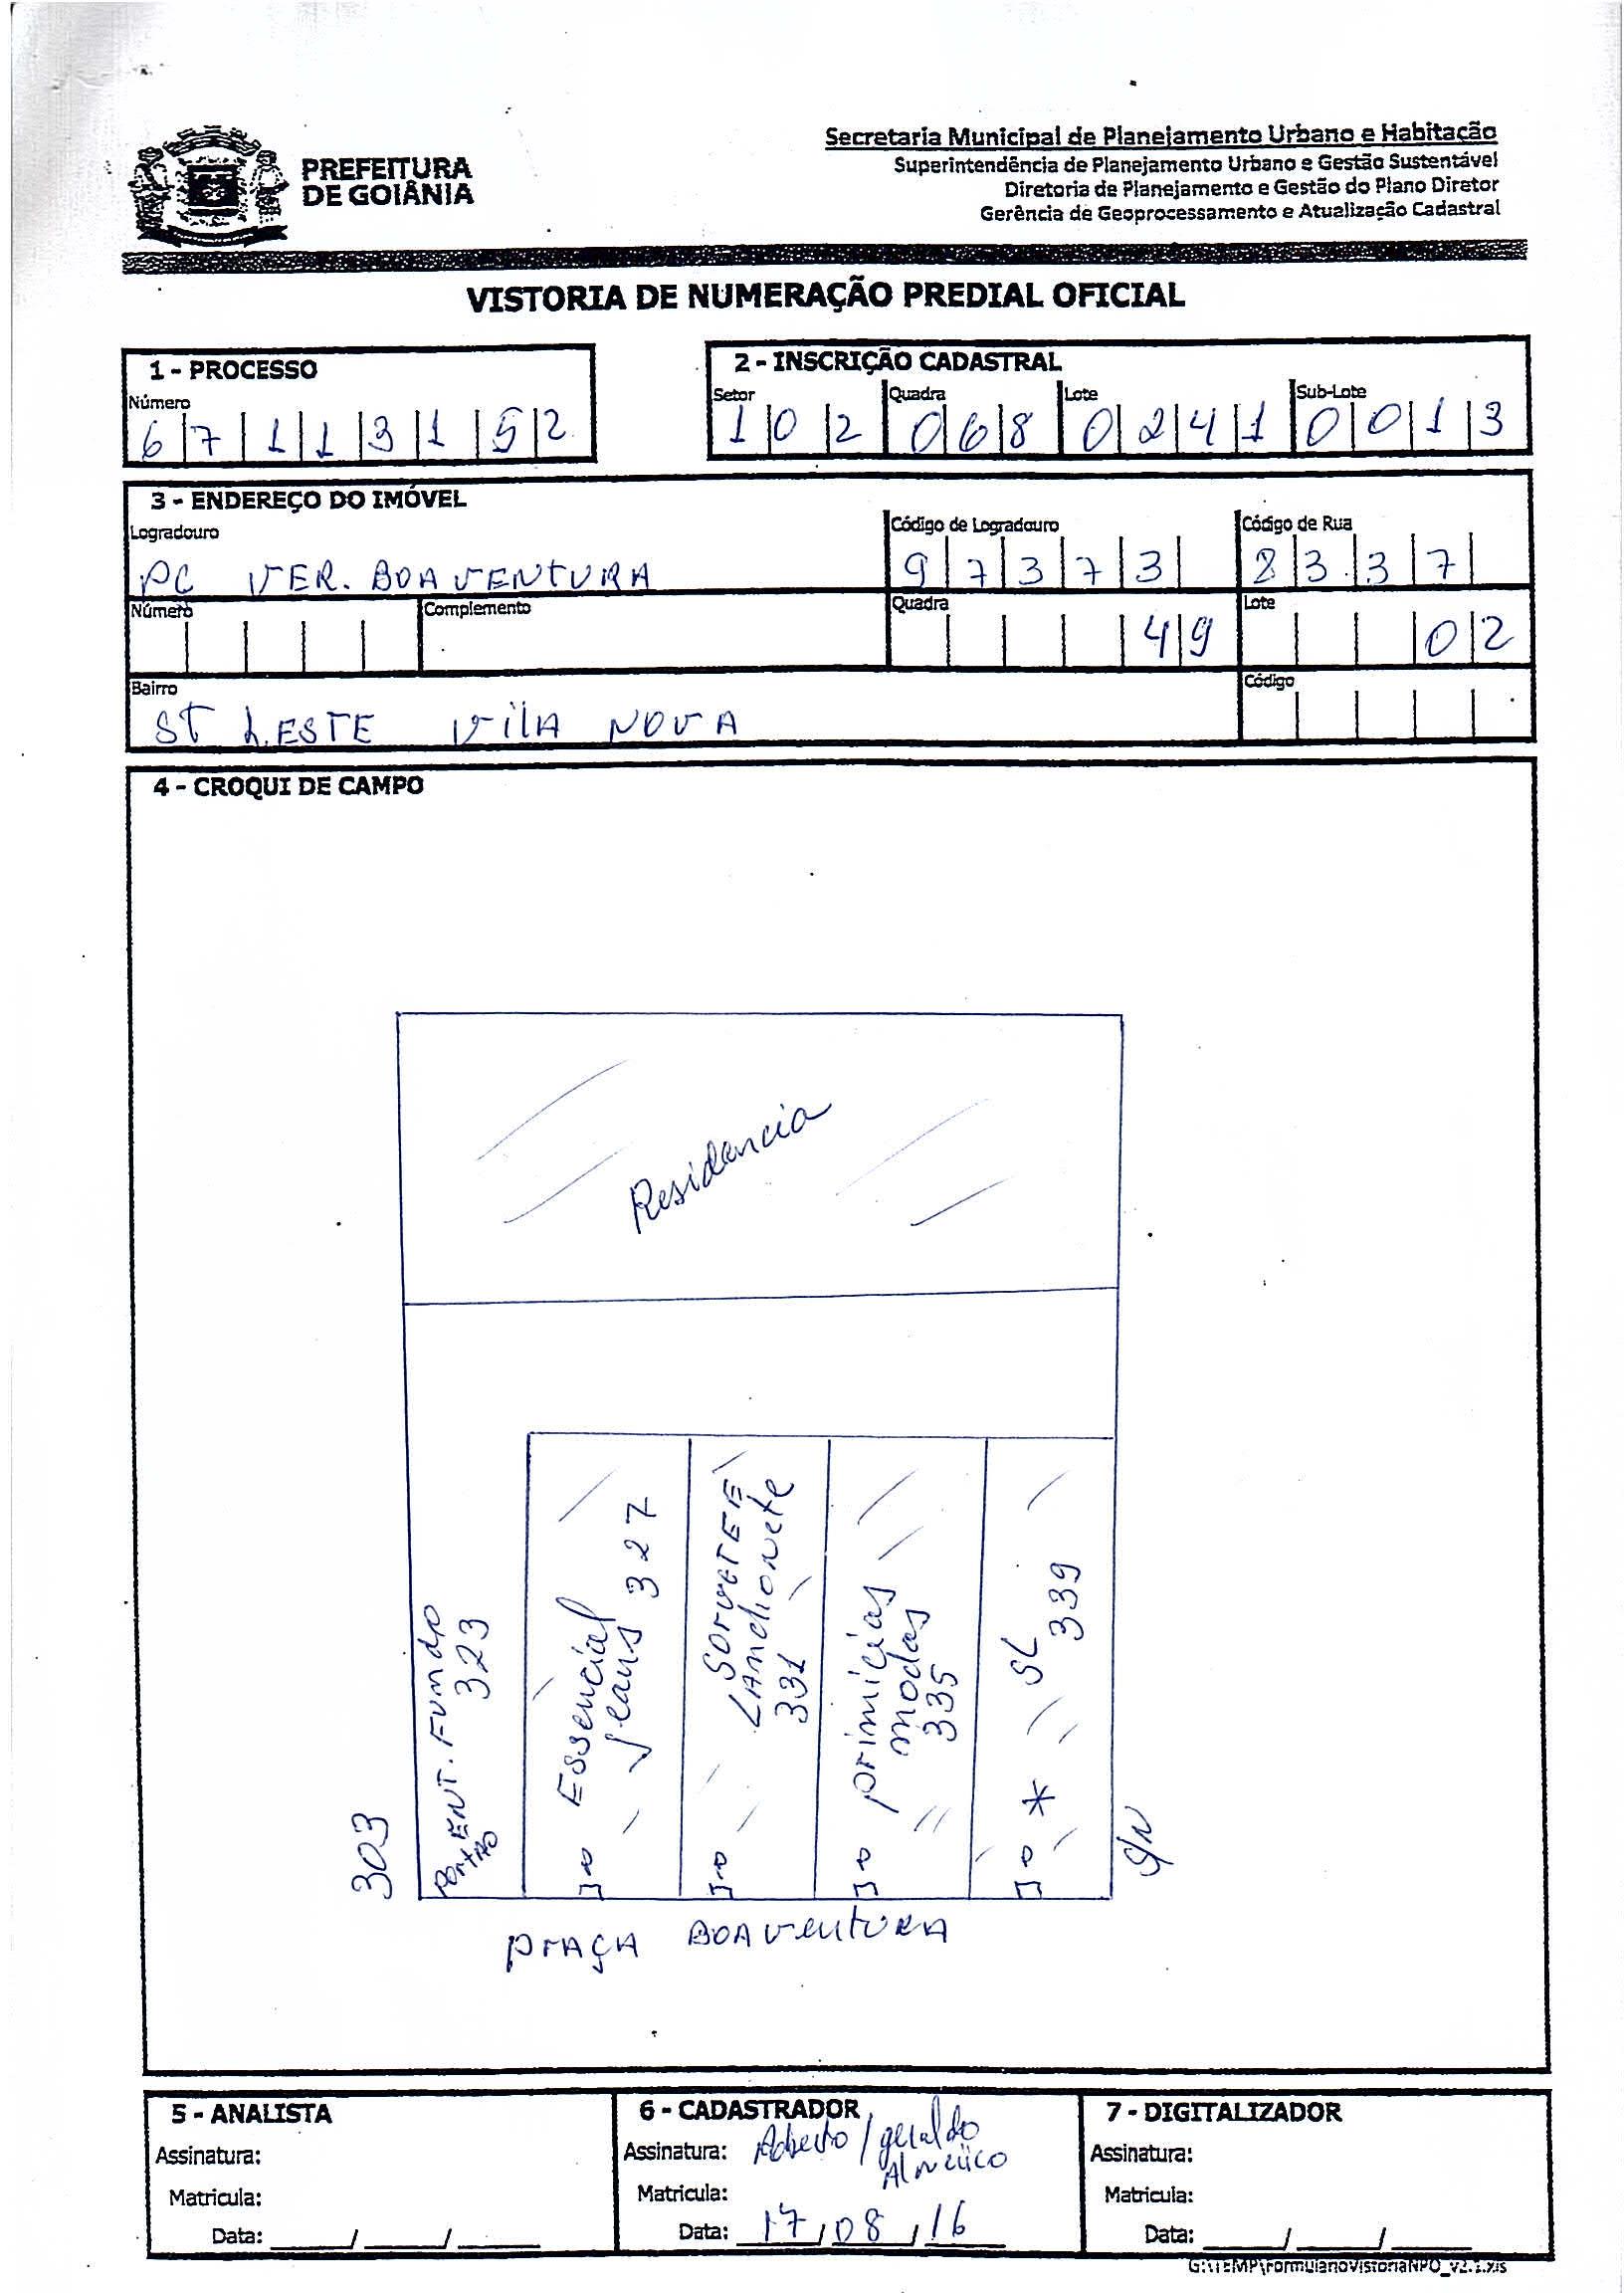 PREFEITURA
DE GOIÂNIA
Secretaria Municipal de Planejamento Urbano e Habitação
Superintendência de Planejamento Urbano e Gestão Sustentável
Diretoria de Planejamento e Gestão do Plano Diretor
Gerência de Geoprocessamento e Atualização Cadastral
VISTORIA DE NUMERAÇÃO PREDIAL OFICIAL
1 - PROCESSO
Número
6 7 1 1 3 1 5 2
2 - INSCRIÇÃO CADASTRAL
Setor Quadra Lote Sub-Lote
1 0 2 0 6 8 0 2 4 1 0 0 1 3
3 - ENDEREÇO DO IMÓVEL
Logradouro Código de Logradouro Código de Rua
PC VER. BOAVENTURA 9 7 3 7 3 8 3 3 7
Número Complemento Quadra Lote
4 9 0 2
Bairro Código
ST LESTE VilA NOVA
4 - CROQUI DE CAMPO
Residencia
303
Portão
ENT. FUNDO
323
Essencial
Jeans 327
SORVETE E
LANCHONETE
331
primicias
modas
335
* SL
339
S/N
PRAÇA BOAVENTURA
5 - ANALISTA
Assinatura:
Matricula:
Data: ____/____/____
6 - CADASTRADOR
Assinatura: / geraldo
Matricula:
Data: 17/08/16
7 - DIGITALIZADOR
Assinatura:
Matricula:
Data: ____/____/____
G:\TEMP\FormularioVistoriaNPO_v2.1.xls